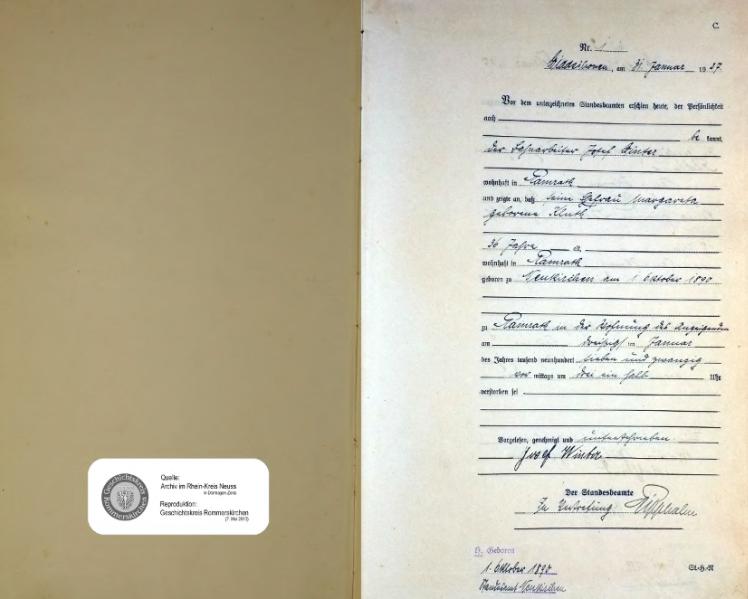 C.
Nr. 1
am 31 Januar 1927
Vor dem unterzeichneten Standesbeamten erschien heute, der Persönlichkeit
nach
be kannt,
der Josef Winter
wohnhaft in Ramrath
und zeigte an, daß seine Ehefrau Margareta
geborene Kluth
36 Jahre
wohnhaft in Ramrath
geboren zu Neukirchen am 1 Oktober 1890
zu Ramrath in der Wohnung des Anzeigenden
am dreißig ten Januar
des Jahres tausend neunhundert sieben und zwanzig
vor mittags um drei ein halb Uhr
verstorben sei
Vorgelesen, genehmigt und unterschrieben
Josef Winter
Der Standesbeamte
In Vertretung
Geboren
1. Oktober 1890
Standesamt Neukirchen
St-H-R
Geschichtskreis
Rommerskirchen
Quelle:
Archiv im Rhein-Kreis Neuss
in Dormagen-Zons
Reproduktion:
Geschichtskreis Rommerskirchen